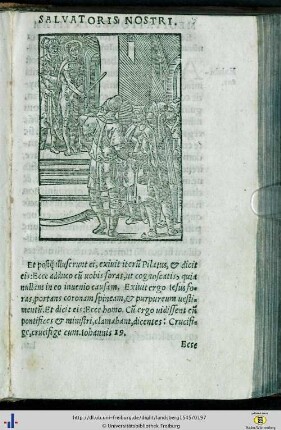 SALVATORIS NOSTRI.
Et postq̃ illuserunt ei, exivit iterũ Pilatus, & dicit
eis: Ecce adduco eũ vobis foras, ut cognoscatis, quia
nullam in eo invenio causam. Exivit ergo Iesus fo
ras, portans coronam spineam, & purpureum vesti
mentũ. Et dicit eis: Ecce homo. Cũ ergo vidissent eũ
pontifices & ministri, clamabant, dicentes: Crucifi
ge, crucifige eum. Iohannis 19.
Ecce
© Universitätsbibliothek Freiburg